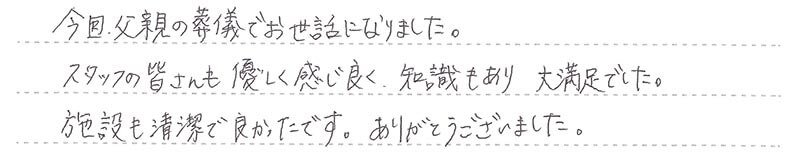 今回、父親の葬儀でお世話になりました。
スタッフの皆さんも優しく感じ良く、知識もあり 大満足でした。
施設も清潔で良かったです。ありがとうございました。